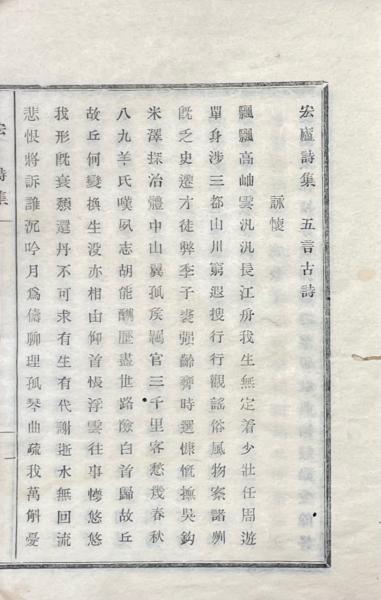 宏廬詩集　五言古詩
詠懷
飄飄高岫雲汎汎長江舟我生無定着少壯任周遊
單身涉三都山川窮遐搜行行觀謠俗風物案諸州
旣乏史遷才徒弊季子裘强齡齊時選慷慨撫吳鉤
米澤探冶體中山翼孤矦羈官三千里客愁幾春秋
八九羊氏嘆夙志胡能酬歷盡世路險白首歸故丘
故丘何變換生沒亦相由仰首悵浮雲往事慘悠悠
我形旣衰頹還丹不可求有生有代謝逝水無回流
悲恨將訴誰沉吟月爲儔聊理孤琴曲疏我萬斛憂
詩集
一